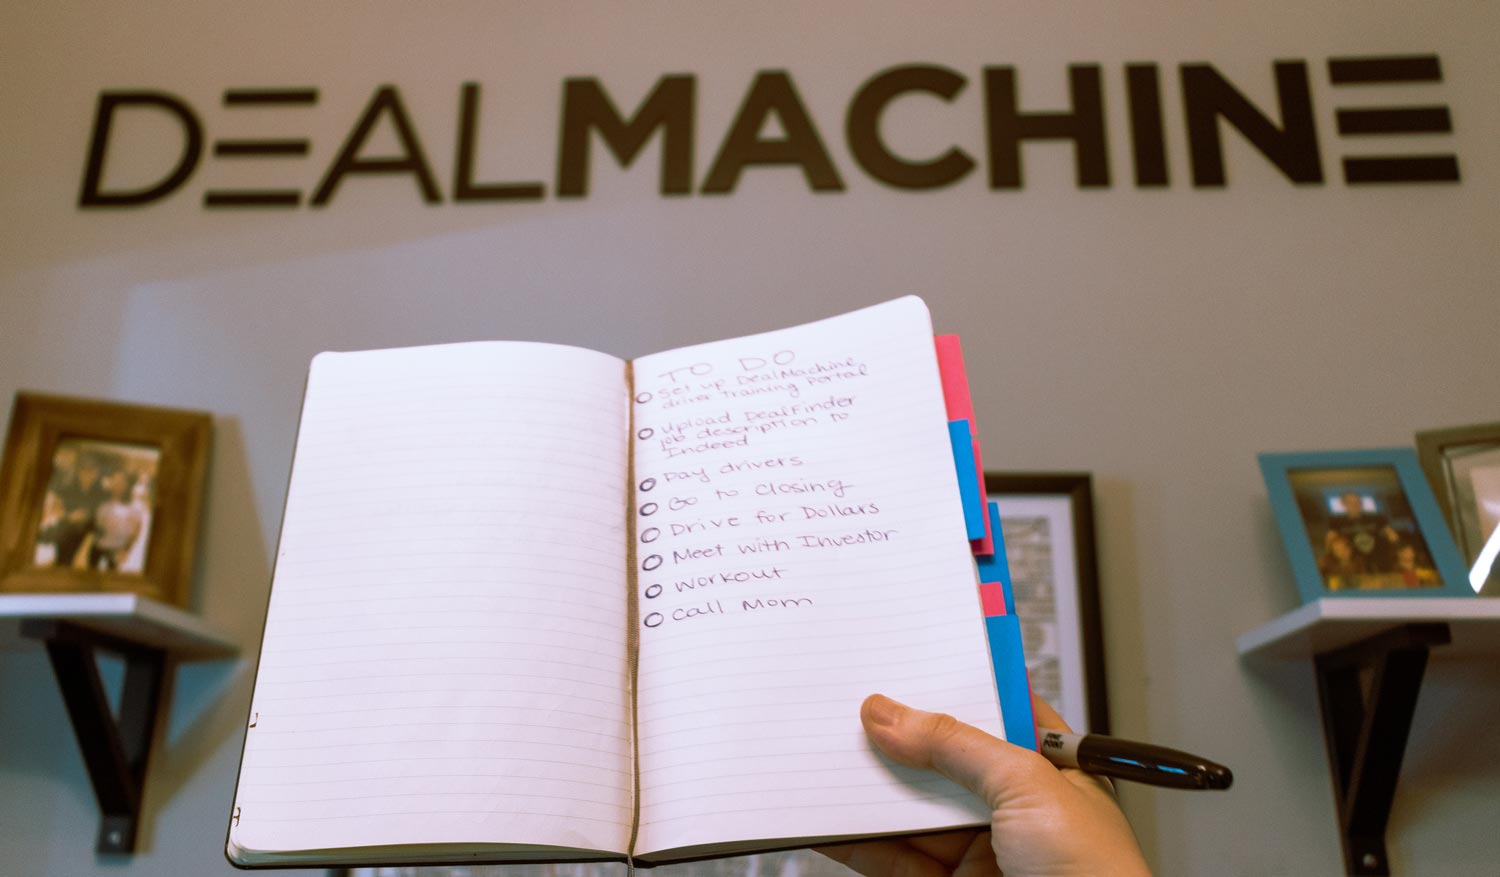 DEALMACHINE
TO DO
Set up DealMachine
driver training portal
Upload DealFinder
job description to
Indeed
Pay drivers
Go to closing
Drive for Dollars
Meet with Investor
Workout
Call Mom
FINE
POINT